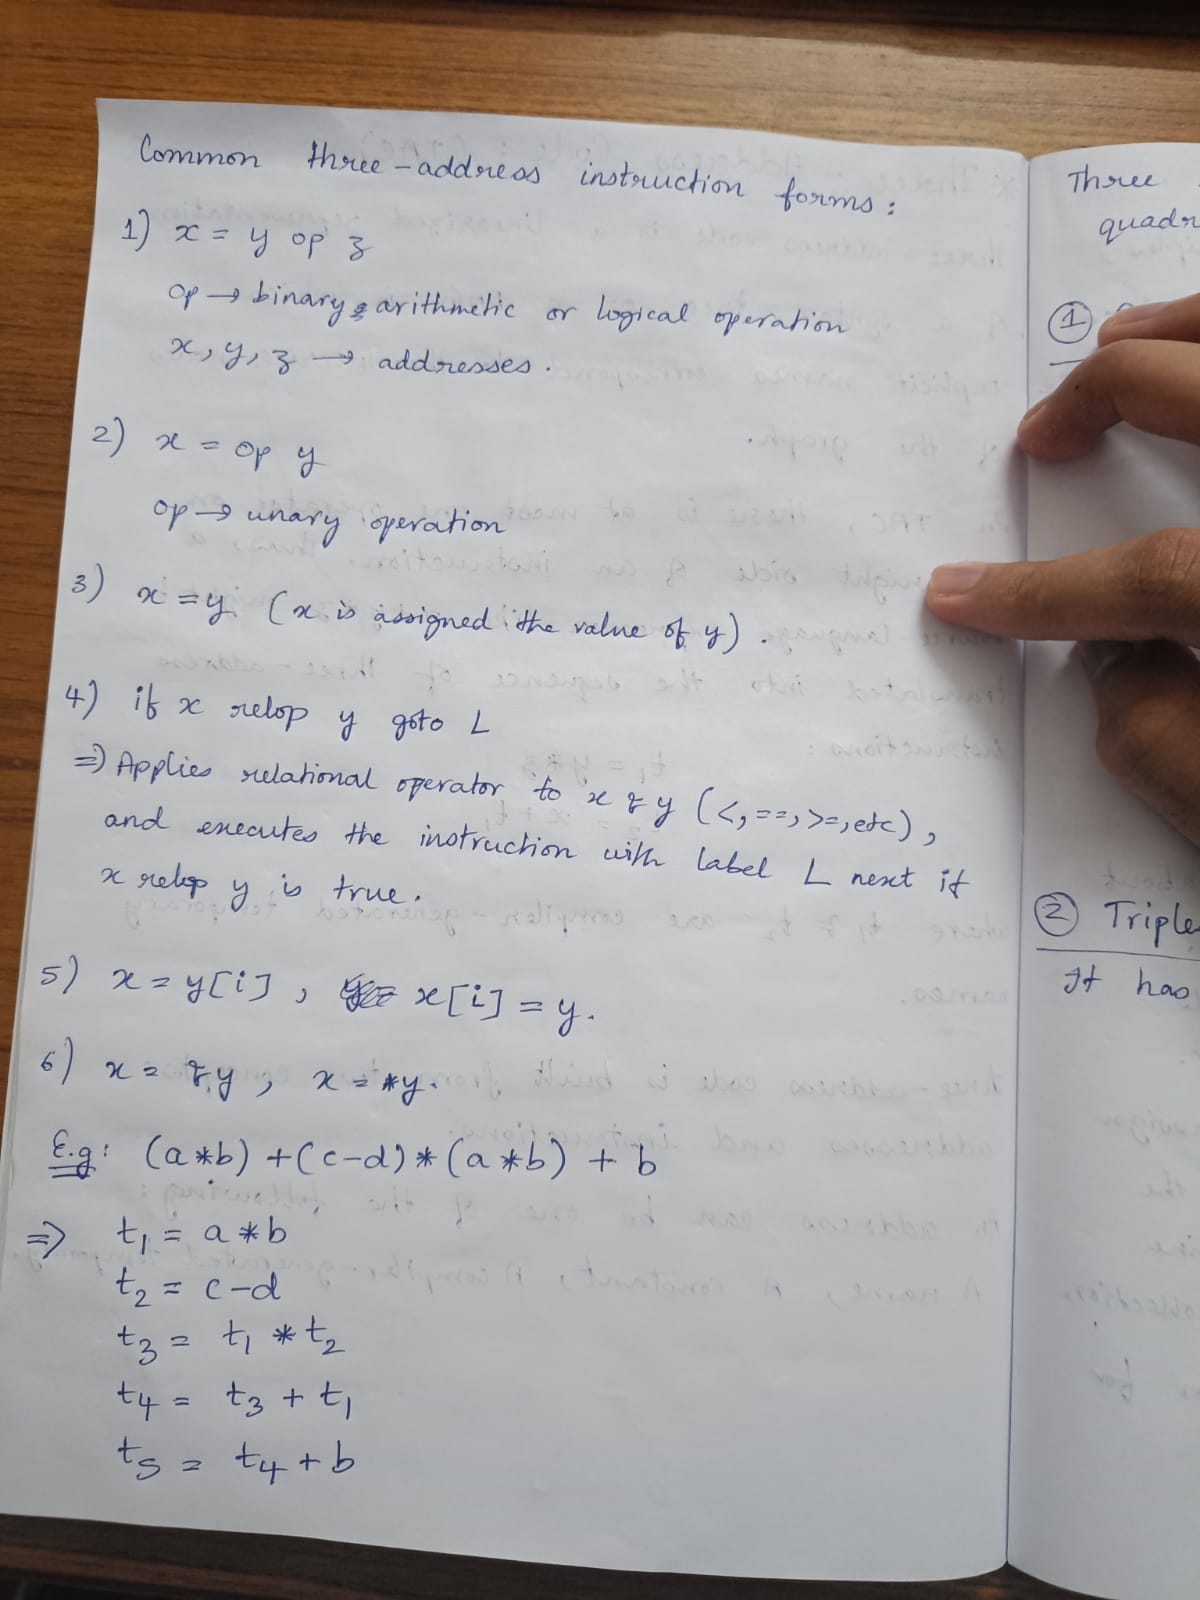 Common three-address instruction forms:
1) x = y op z
op → binary arithmetic or logical operation
x, y, z → addresses.
2) x = op y
op → unary operation
3) x = y (x is assigned the value of y).
4) if x relop y goto L
⇒ Applies relational operator to x & y (<, ==, >=, etc),
and executes the instruction with label L next if
x relop y is true.
5) x = y[i] , x[i] = y.
6) x = &y , x = *y.
E.g: (a*b) + (c-d) * (a*b) + b
⇒ t1 = a*b
t2 = c-d
t3 = t1 * t2
t4 = t3 + t1
t5 = t4 + b
Three
quadr
1
2 Triple
It has